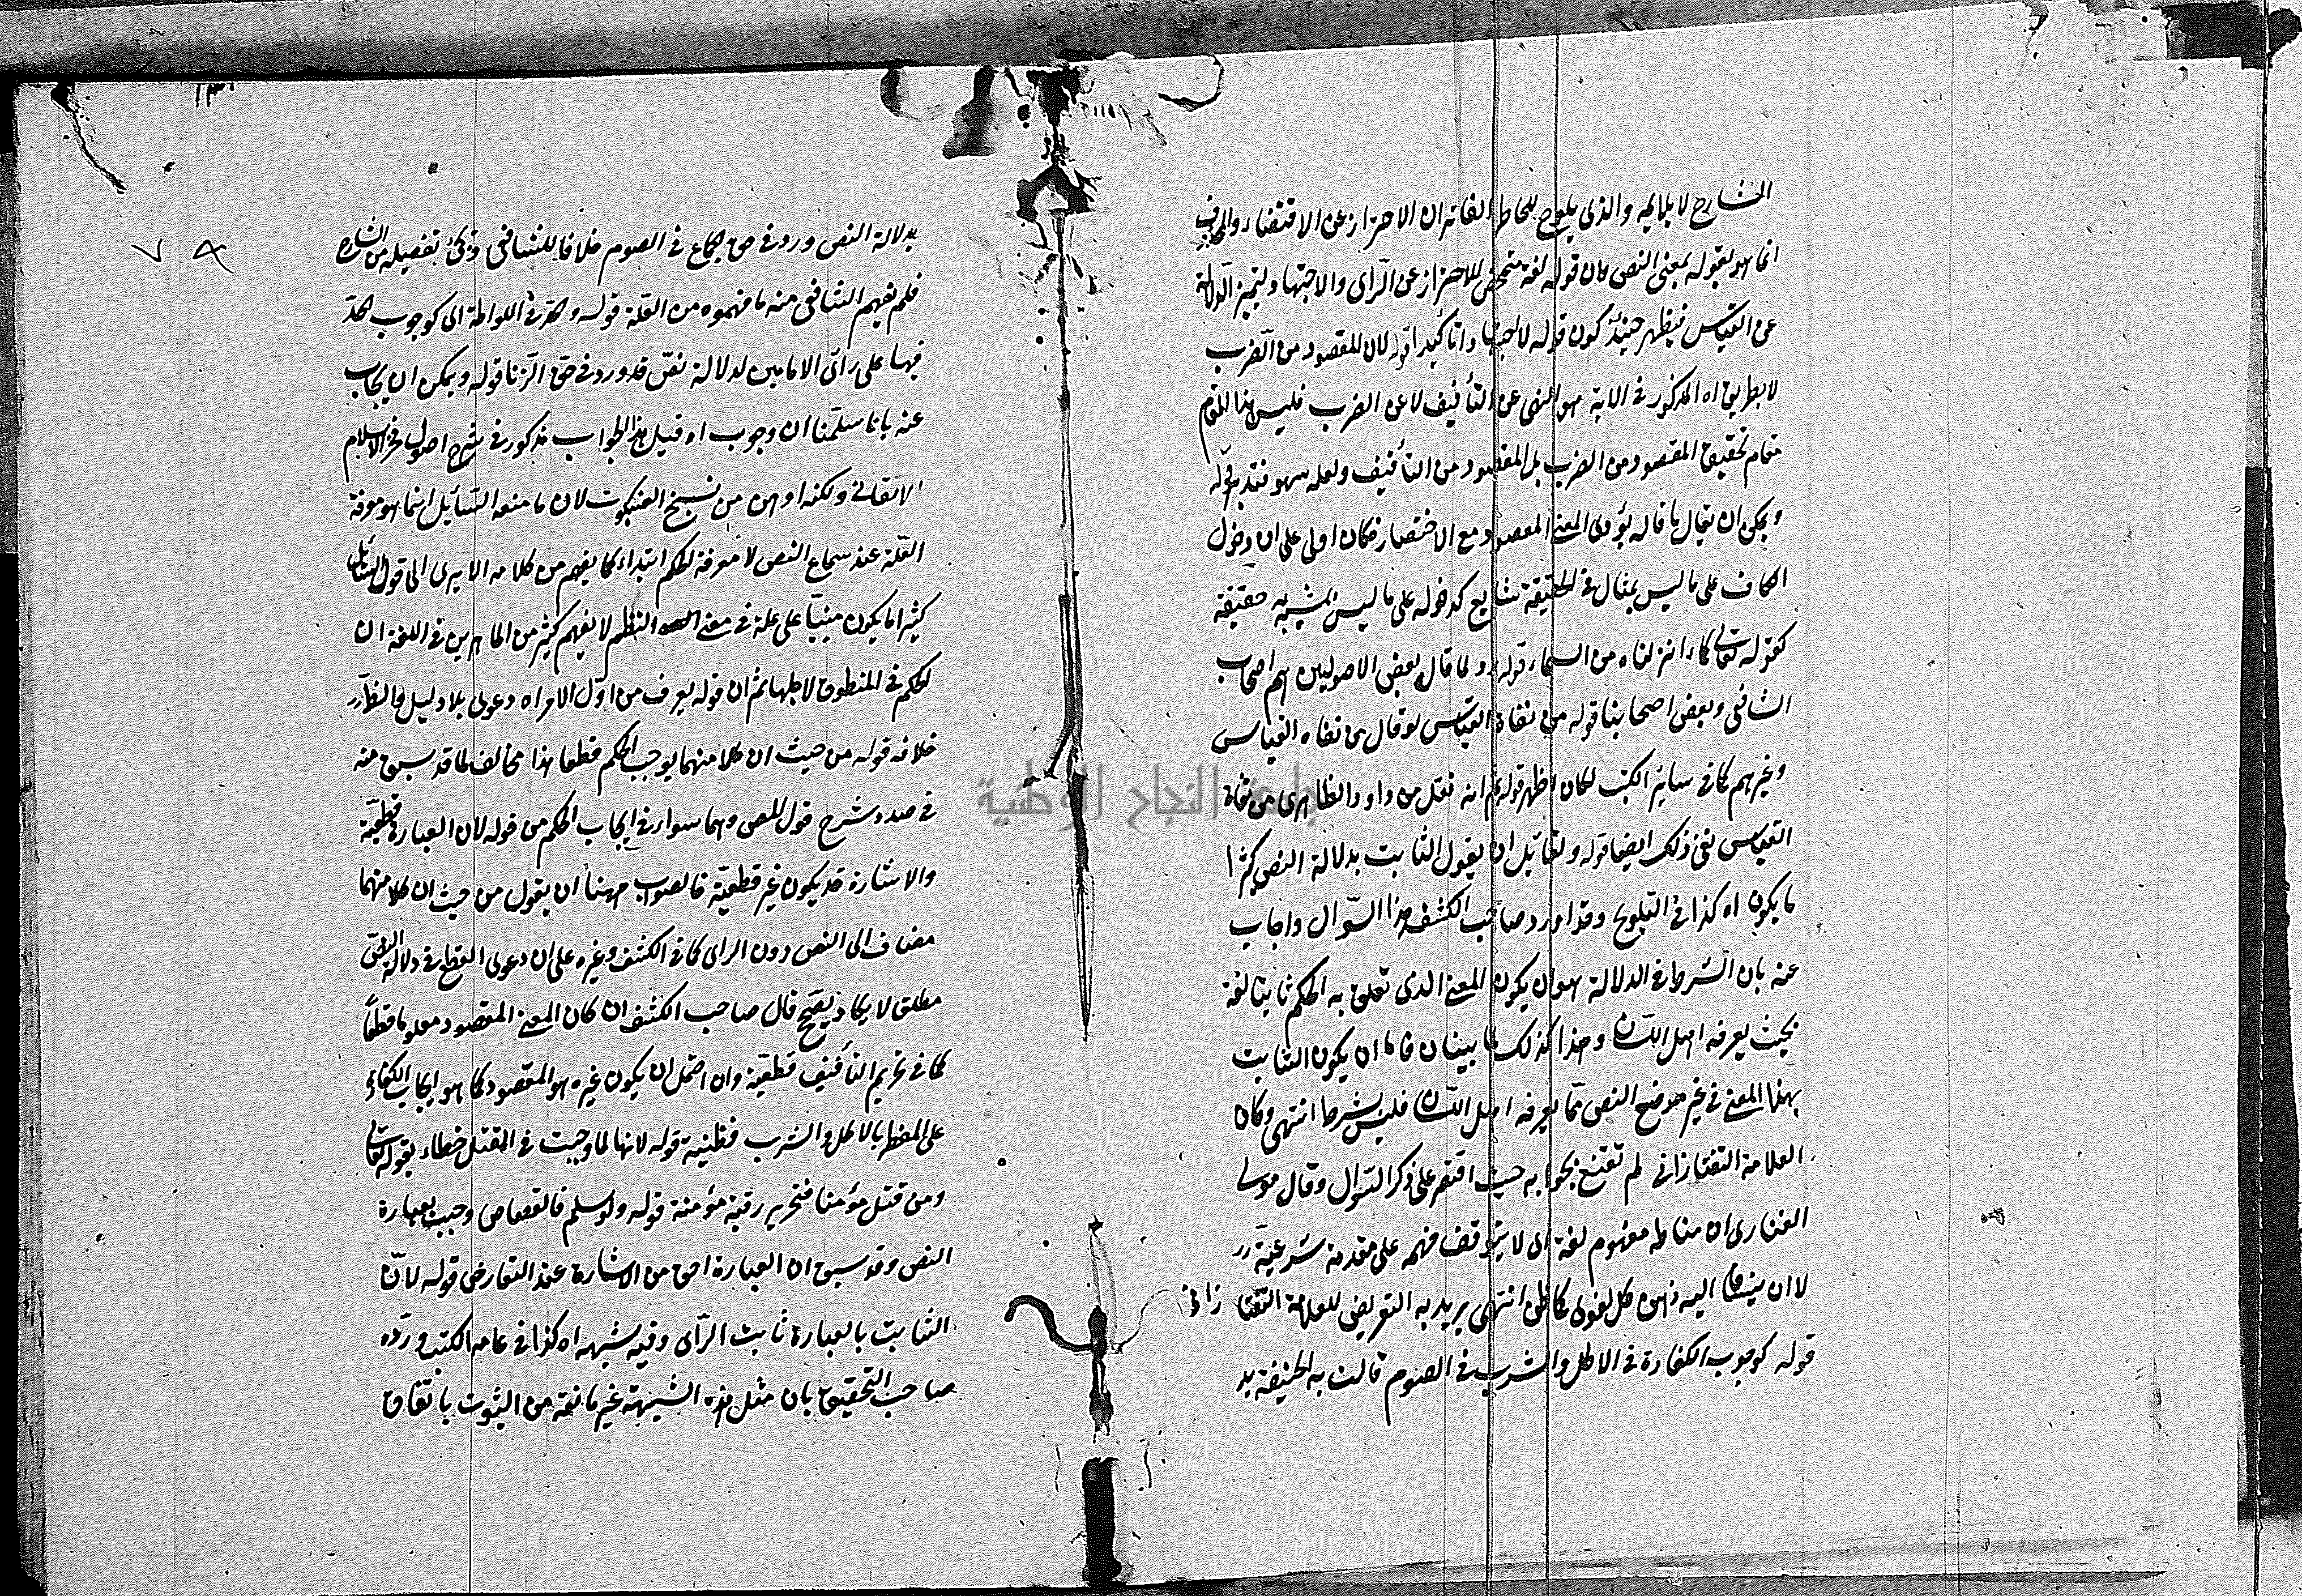 الشارح لا يلايمه والذي يلوح للخاطر الفاتر ان الاحتراز عن الاقتضاء والمحذوف
انما هو بقوله بمعنى النص لان قوله لغة متمحض للاحتراز عن الرأى والاجتهاد ولتميز الدلالة
عن القياس فيظهر حينئذ كون قوله لا اجتهادا تأكيدا قوله لان المقصود من الضرب
لا بطريق اه المذكور في الاية هو النهى عن التأفيف لا عن الضرب فليس هنا المقام
مقام تحقيق المقصود من الضرب بل المقصود من التأفيف ولعله سهو فتدبر قوله
ويمكن ان يقال ما قاله يؤدى المعنى المقصود مع الاختصار فكان اولى على ان دخول
الكاف على ما ليس بمثال في الحقيقة شايع كدخوله على ما ليس بمشبه به حقيقة
كقوله تعالى كماء انزلناه من السماء قوله ولما قال بعض الاصوليين هم اصحاب
الشافعى وبعض اصحابنا قوله من نفاة القياس لو قال من نفاه القياس
وغيرهم كما في سائر الكتب لكان اظهر قوله ثم انه نقل من داود الظاهرى من نفاة
القياس نفى ذلك ايضا قوله ولقائل ان يقول الثابت بدلالة النص كثيرا
ما يكون اه كذا في التلويح وقد اورد صاحب الكشف هذا السؤال واجاب
عنه بان الشرط في الدلالة هو ان يكون المعنى الذى تعلق به الحكم ثابتا لغة
بحيث يعرفه اهل اللسان وهذا كذلك لما بينا ان فاما ان يكون الثابت
بهذا المعنى في غير موضع النص مما يعرفه اهل اللسان فليس بشرط انتهى وكان
العلامة التفتازانى لم تقنع بجوابه حيث اقتصر على ذكر السؤال وقال مولى
الفنارى ان مناطه مفهوم لغة اى لا يتوقف فهمه على مقدمة شرعية
لا ان ينساق اليه ذهن كل لغوى كما ظن انتهى يريد به التعريض للعلامة التفتا زانى
قوله كوجوب الكفارة في الاكل والشرب في الصوم قالت به الحنيفة بد
٧٨
بدلالة النص ورد في حق الجماع في الصوم خلافا للشافعى وتجئ تفصيله من الشارح
فلم يفهم الشافعى منه ما فهموه من العلة قوله وكحد في اللواطة اى كوجوب الحد
فيها على رأى الامامين لدلالة نص قد ورد في حق الزنا قوله ويمكن ان يجاب
عنه بانا سلمنا ان وجوب اه قيل هذا الجواب مذكور في شرح اصول فخر الاسلام
الاتقانى ولكنه اوهن من نسيج العنكبوت لان ما منعه السائل انما هو معرفة
العلة عند سماع النص لا معرفة الحكم ابتداء كما يفهم من كلامه الا يرى الى قول السائل
كثيرا ما يكون مبنيا على علة في معنى النظم لا يفهم كثير من الماهرين في اللغة ان
الحكم في المنطوق لاجلها ثم ان قوله يعرف من اول الامر اه دعوى بلا دليل والظاهر
خلافه قوله من حيث ان كلا منهما يوجب الحكم قطعا هذا مخالف لما قد سبق منه
في صدد شرح قول المص وهما سواء في ايجاب الحكم من قوله لان العبارة قطعية
والاشارة قد يكون غير قطعية فالصواب ههنا ان يقول من حيث ان كلا منهما
مضاف الى النص دون الراى كما في الكشف وغيره على ان دعوى القطع في دلالة النص
مطلق لا يكاد يصح قال صاحب الكشف ان كان المعنى المقصود معلوما قطعا
كما في تحريم التأفيف قطعية وان احتمل ان يكون غيره هو المقصود كما هو ايجاب الكفارة
على المفطر بالاكل والشرب فظنية قوله لانها لما وجبت في القتل خطاء بقوله تعالى
ومن قتل مؤمنا فتحرير رقبة مؤمنة قوله ولو سلم فالقصاص وجبت بعبارة
النص وقد سبق ان العبارة احق من الاشارة عند التعارض قوله لان
الثابت بالعبارة ثابت الرأى وفيه شبهه اه كذا في عامه الكتب ورده
صاحب التحقيق بان مثل هذه الشبهة غير مانعة من الثبوت باتفاق
جامعة النجاح الوطنية